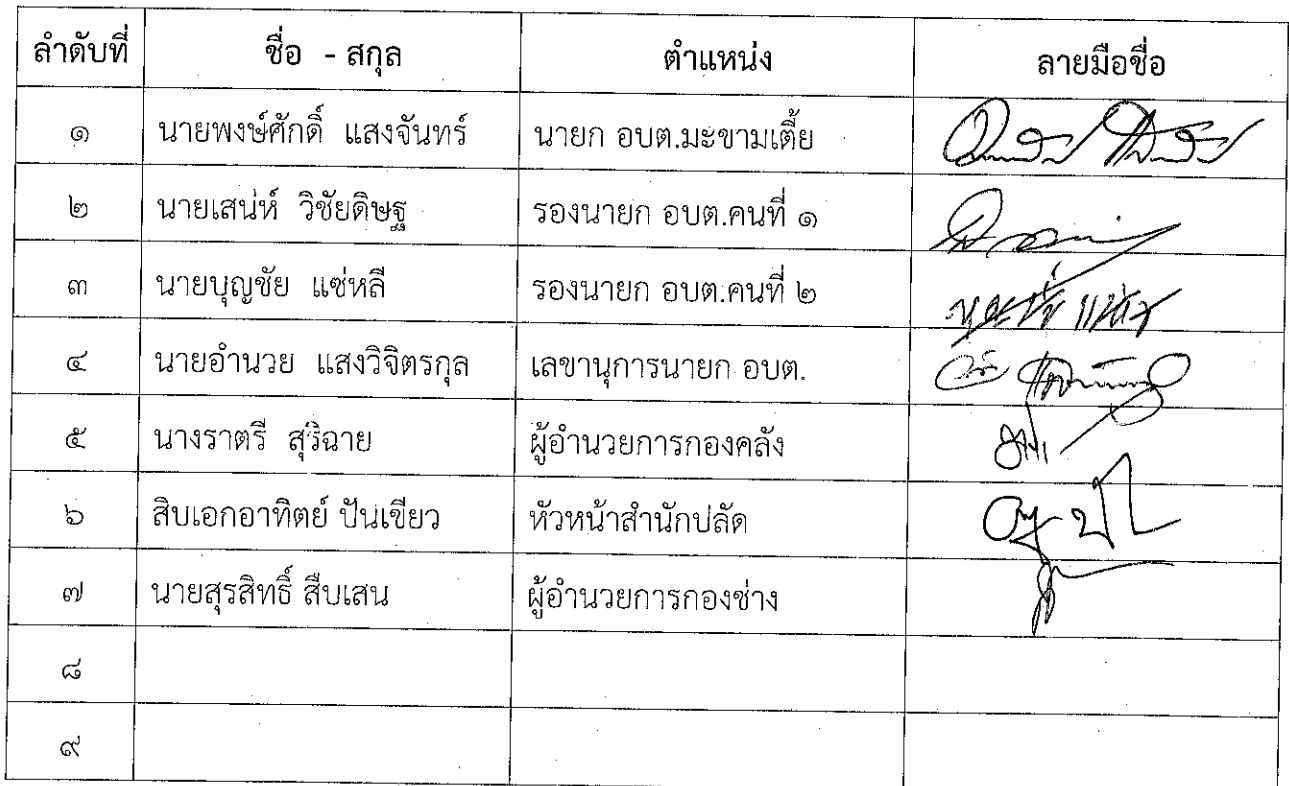 ลำดับที่ ชื่อ - สกุล ตำแหน่ง ลายมือชื่อ
๑ นายพงษ์ศักดิ์ แสงจันทร์ นายก อบต.มะขามเตี้ย
๒ นายเสน่ห์ วิชัยดิษฐ รองนายก อบต.คนที่ ๑
๓ นายบุญชัย แซ่หลี รองนายก อบต.คนที่ ๒
๔ นายอำนวย แสงวิจิตรกุล เลขานุการนายก อบต.
๕ นางราตรี สุริฉาย ผู้อำนวยการกองคลัง
๖ สิบเอกอาทิตย์ ปันเขียว หัวหน้าสำนักปลัด
๗ นายสุรสิทธิ์ สืบเสน ผู้อำนวยการกองช่าง
๘
๙